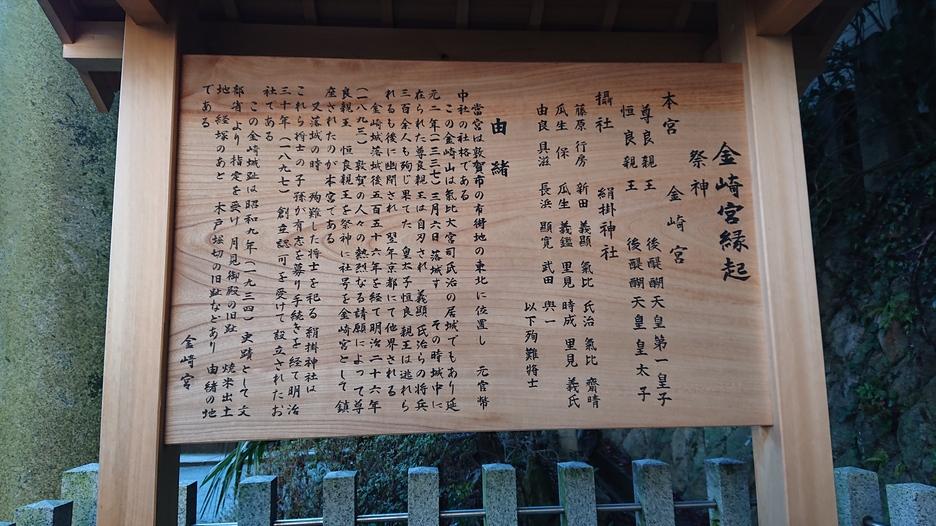 金崎宮縁起
祭神
本宮 金崎宮
尊良親王 後醍醐天皇第一皇子
恒良親王 後醍醐天皇皇太子
攝社 絹掛神社
藤原行房 新田義顯 氣比氏治 氣比齋晴
瓜生保 瓜生義鑑 里見時成 里見義氏
由良具滋 長浜顯寛 武田與一
以下殉難将士
由緒
當宮は敦賀市の市街地の東北に位置し 元官幣
中社の社格である
この金崎山は氣比大宮司氏治の居城でもあり延
元二年(一三三七)三月六日落城す その時城中に
在られた尊良親王は自刃され 義顯 氏治らの将兵
三百余人も殉じ果てた 皇太子恒良親王は逃れら
れるも後に幽閉され 翌年京都にて他界される
金崎城落城後五百五十六年を経て明治二十六年
(一八九三) 敦賀の人々の熱烈なる請願によって尊
良親王 恒良親王を祭神に社号を金崎宮として鎮
座されたのが本宮である
又落城の時 殉難した将士を祀る 絹掛神社は
これら将士の子孫が有志を募り手続きを経て明治
三十年(一八九七) 創立認可を受けて設立されたお
社である
この金崎城趾は昭和九年(一九三四)史蹟として文
部省より指定を受け 月見御殿の旧趾 焼米出土
地 経塚のあと 木戸垜切の旧趾などあり 由緒の地
である
金崎宮